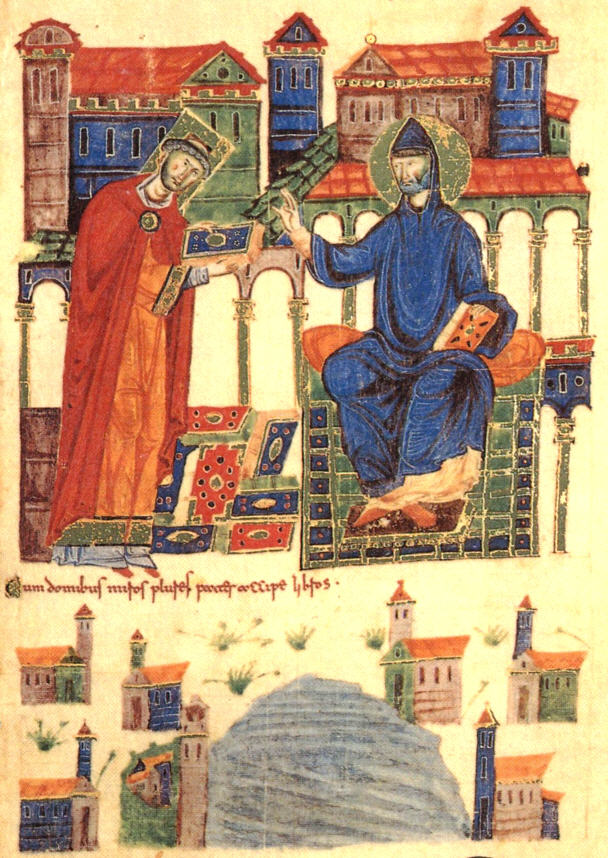 Cum domibus miros plures pater accipe libros.